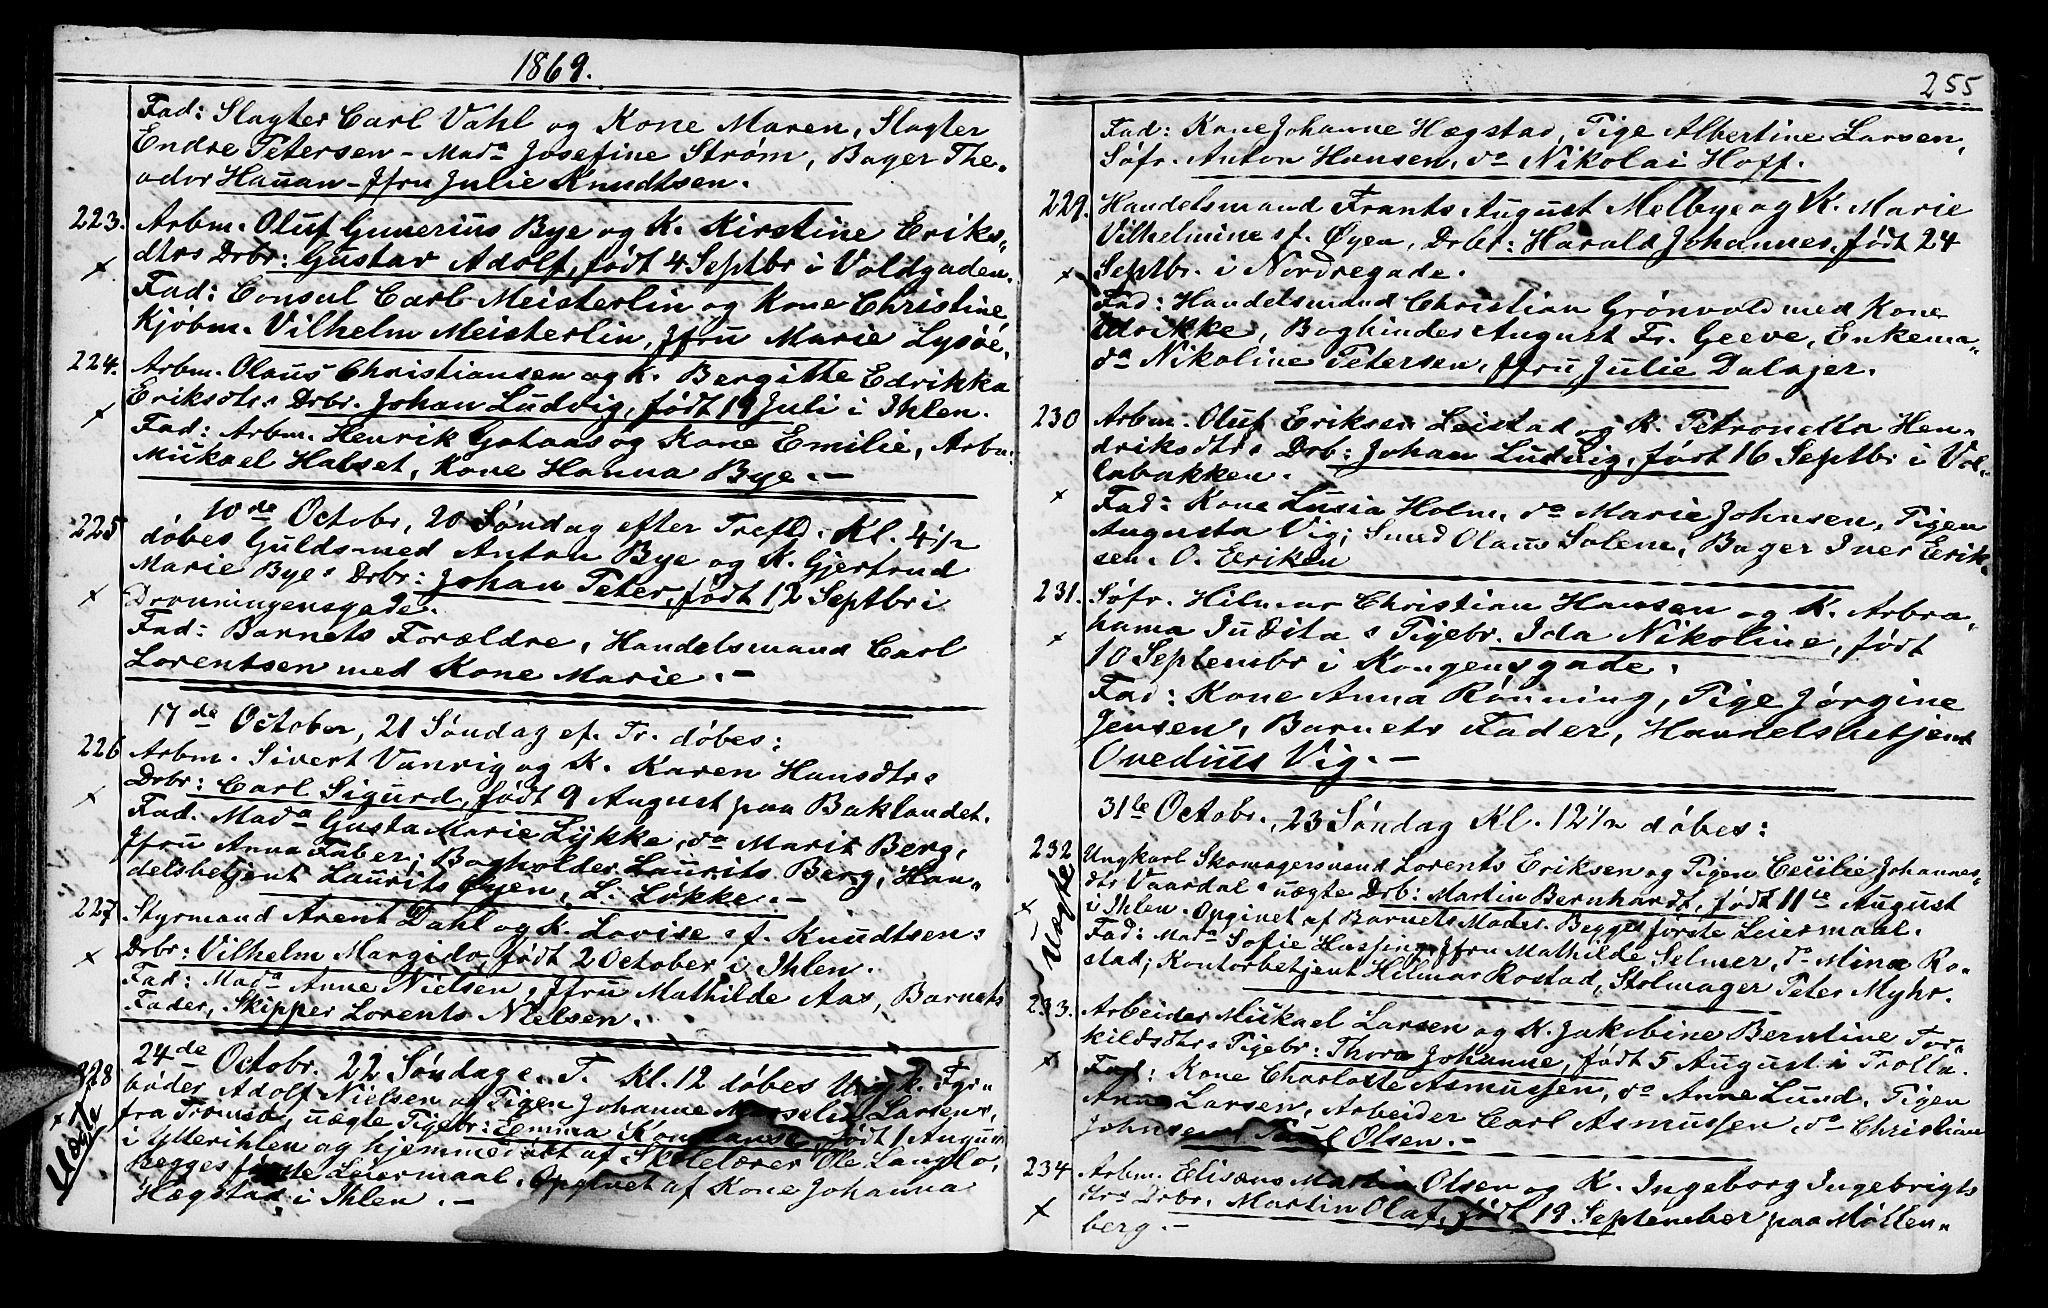 1869.
Fad: Slagter Carl Vahl og Kone Maren, Slagter
Endre Petersen – Mada Josefine Strøm, Bager The-
odor Hauan – Jfru Julie Knudtsen.
223. Arbm. Oluf Gunerius Bye og K. Kirstine Eriks-
dtrs Drbr: Gustav Adolf, født 4 Septbr i Voldgaden.
x Fad: Consul Carl Meisterlin og Kone Christine
Kjøbm. Vilhelm Meisterlin, Jfru Marie Lysøe.
224. Arbm. Olaus Christiansen og K. Bergitte Edrikka
Eriksdtrs Drbr. Johan Ludvig, født 19 Juli i Ihlen.
x Fad: Arbm. Henrik Gotaas og Kone Emilie, Arbm.
Mikael Halset, Kone Hanna Bye. –
10de Octobr, 20 Søndag efter Trefld. Kl. 4 1/2
225 døbes Guldsmed Anton Bye og K. Gjertrud
Marie Byes Drbr: Johan Peter, født 12 Septbr i
x Dronningensgade.
Fad: Barnets Forældre, Handelsmand Carl
Lorentsen med Kone Marie. –
17de October, 21 Søndag ef. Tr. døbes:
226 Arbm. Sivert Vanvig og K. Karen Hansdtrs
Drbr: Carl Sigurd, født 9 August paa Baklandet.
x Fad. Mada Gusta Marie Lykke, do Marit Berg,
Jfru Anna Faber; Bogholder Laurits Berg, Han-
delsbetjent Laurits Øyen, L. Løkke. –
227 Styrmand Arent Dahl og K. Lovise f. Knudtsens
Drbr: Vilhelm Margido, født 2 October i Ihlen.
x Fad: Mada Anne Nielsen, Jfru Mathilde Aas, Barnets
Fader, Skipper Lorents Nielsen.
24de Octobr. 22 Søndag e. T. Kl. 12 døbes Ungk. Fyr-
228 bøder Adolf Nielsen og Pigen Johanne Larsens,
x fra Tromsø, uægte Pigebr: Emma Konstanse, født 1 August
Uægte i Ytterihlen og hjemmedøbt af Skolelærer Ole Langlo,
Begges første Leiermaal. Opgivet af Kone Johanna
Hægstad, i Ihlen. –
255
Fad: Kone Johanne Hægstad, Pige Albertine Larsen,
Søfr. Anton Hansen, do Nikolai Hoff.
229. Handelsmand Frants August Melbye og K. Marie
Vilhelmine f. Øyen, Drbr: Harald Johannes, født 24
x Septbr. i Nordregade.
Fad: Handelsmand Christian Grønvold med Kone
Edrikke, Bogbinder August Fr. Geeve, Enkema-
da Nikoline Petersen, Jfru Julie Dalager.
230 Arbm. Oluf Eriksen Leistad og K. Petronella Hen-
driksdtrs Drbr: Johan Ludvig, født 16 Septbr i Vol-
labakken.
x Fad: Kone Lusia Holm, do Marie Johnsen, Pigen
Augusta Vig; Smed Olaus Solem, Bager Iver Erik-
sen. O. Eriken
231. Søfr. Hilmar Christian Hansen og K. Arbra-
hama Judita s Pigebr. Ida Nikoline, født
x 10 Septembr i Kongensgade.
Fad: Kone Anna Rønning, Pige Jørgine
Jensen, Barnets Fader, Handelsbetjent
Ovedius Vig. –
31te Octobr., 23 Søndag Kl. 12 1/2 døbes:
232 Ungkarl Skomagersvend Lorents Eriksen og Pigen Cecilie Johannes-
dtr Vaardals uægte Drbr: Martin Bernhardt, født 11te August
x Uægte i Ihlen. Opgivet af Barnets Moder. Begges første Leiermaal.
Fad: Mada Sofie Hussing, Jfru Mathilde Selmer, do Mina Ro-
stad; Kontorbetjent Hilmar Rostad, Stolmager Peter Myhr.
233. Arbeider Mikael Larsen og K. Jakobine Berntine Tor-
kildsdtrs Pigebr: Thora Johanne, født 5 August i Trolla.
x Fad: Kone Charlotte Asmussen, do Anne Lund, Pigen
Anne Larsen, Arbeider Carl Asmussen, do Christian
Johnsen, Paul Olsen. –
234 Arbm. Elisæus Martin Olsen og K. Ingeborg Ingebrigts
dtrs Drbr. Martin Olaf, født 19 September paa Møllen-
x berg. –